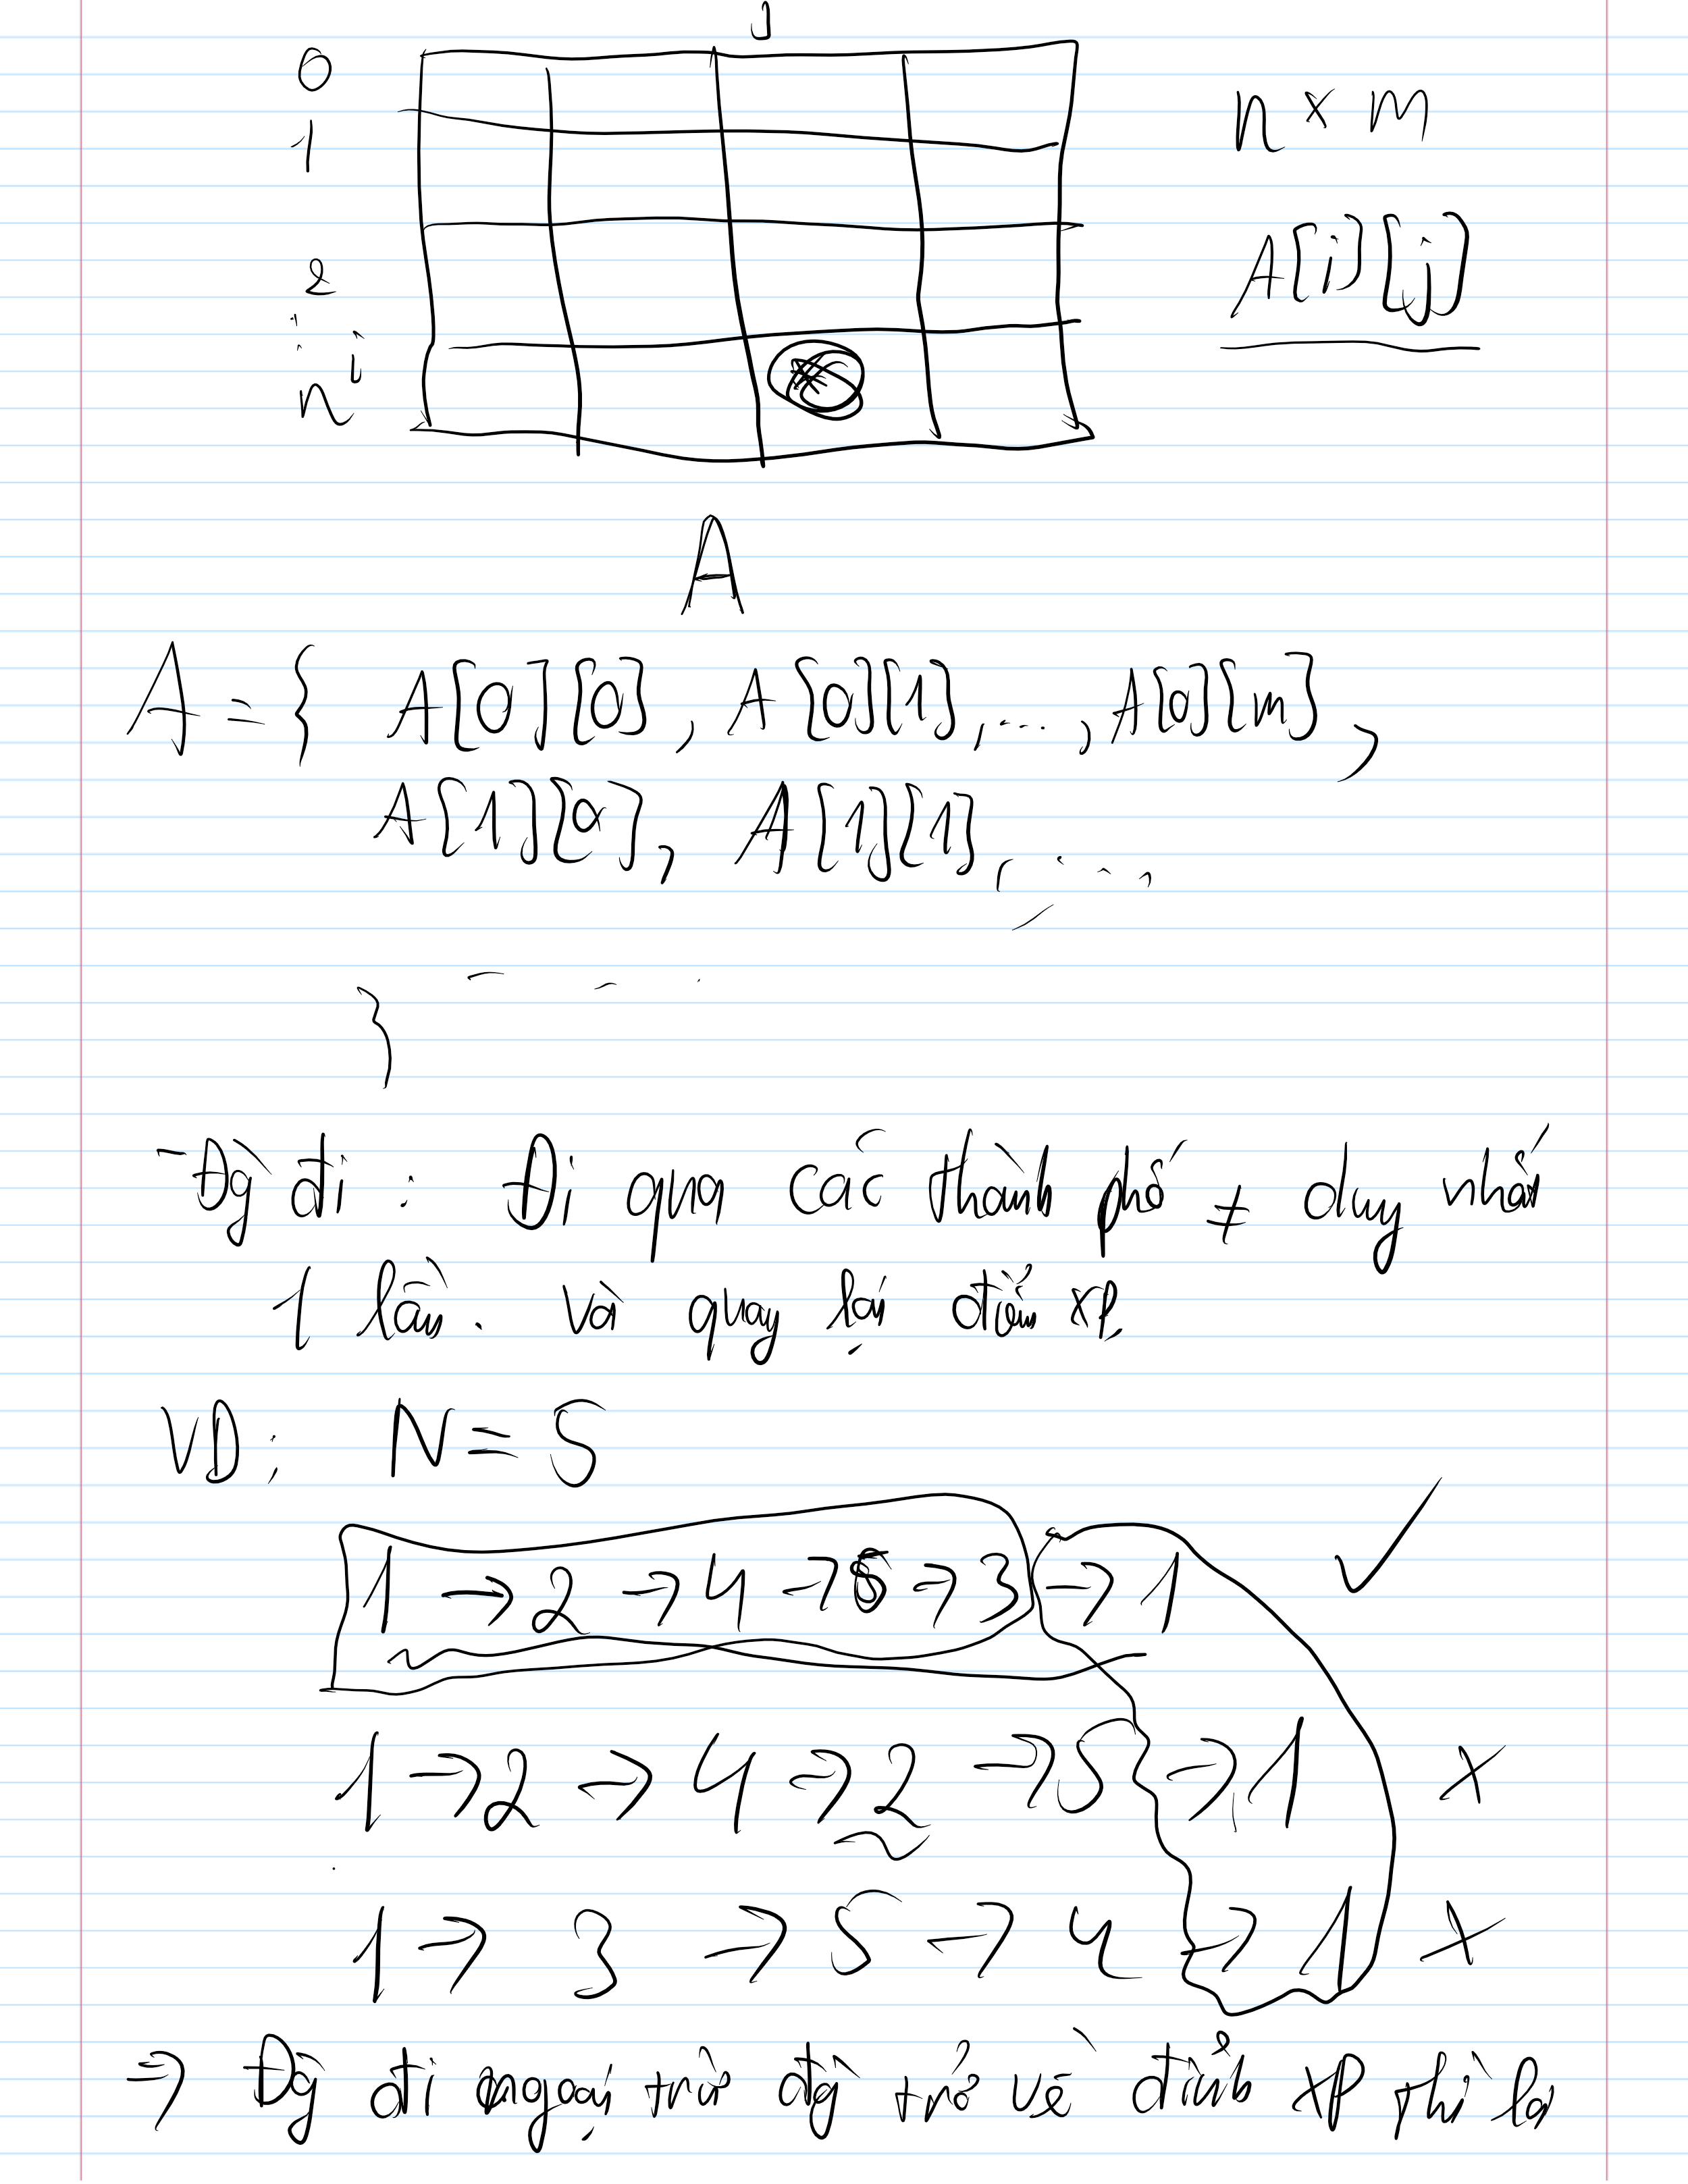 j
0
n × m
1
A[i][j]
2
i
n
A
A = { A[0][0], A[0][1], ..., A[0][m],
A[1][0], A[1][1], ...
}
- Đg đi : Đi qua các thành phố ≠ duy nhất
1 lần. và quay lại điểm XP
VD: N = 5
1 → 2 → 4 → 5 → 3 → 1 ✓
1 → 2 → 4 → 2 → 5 → 1 ×
1 → 3 → 5 → 4 → 1 ×
→ Đg đi ngoại trừ đg trở về đỉnh XP thì là